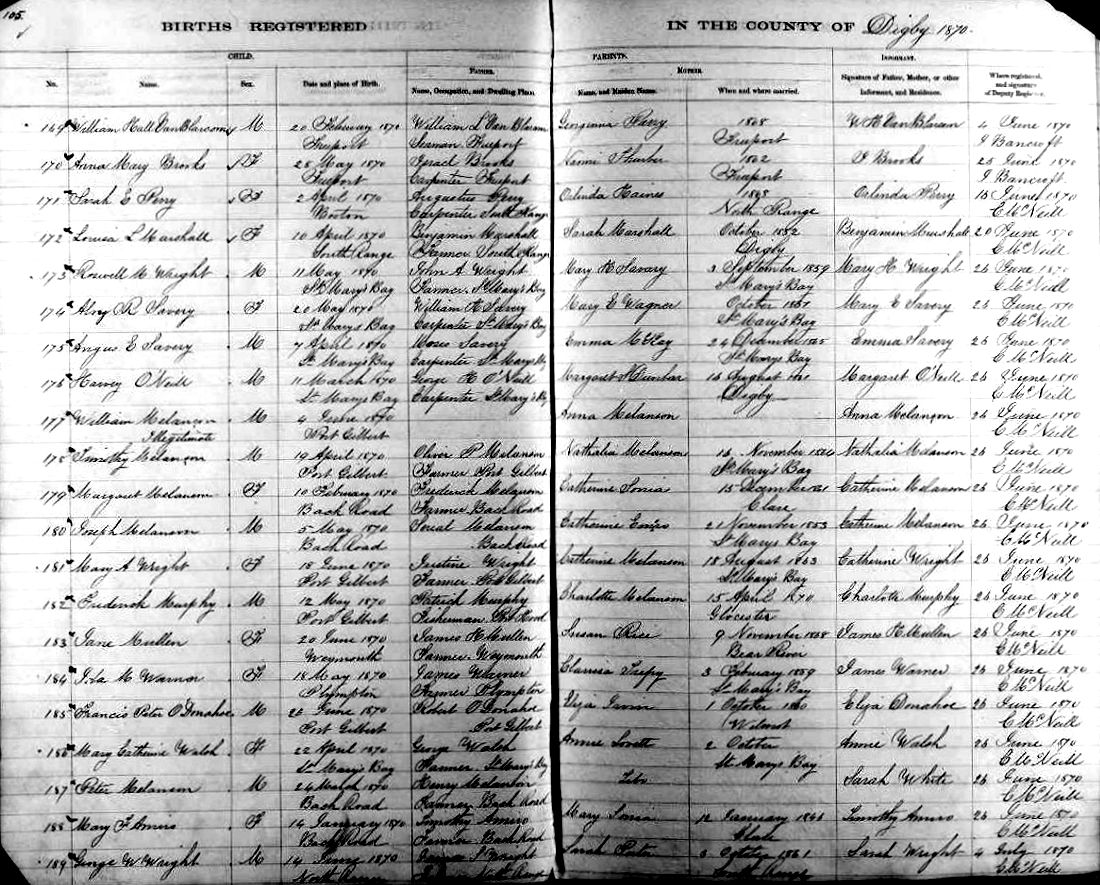 105.
BIRTHS REGISTERED IN THE COUNTY OF Digby 1870.
CHILD. PARENTS. INFORMANT.
FATHER. MOTHER.
No. Name. Sex. Date and place of Birth. Name, Occupation, and Dwelling Place. Name, and Maiden Name. When and where married. Signature of Father, Mother, or other Informant, and Residence. Where registered, and signature of Deputy Registrar.
169 William Hall VanBlarcom M 20 February 1870 William L VanBlarcom Georgina Perry 1868 4 June 1870
Freeport Seaman Freeport Freeport J Bancroft
170 Anna Mary Brooks F 28 May 1870 Israel Brooks Naomi Thurber 1862 I Brooks 25 June 1870
Freeport Carpenter Freeport Freeport J Bancroft
171 Sarah E Perry F 2 April 1870 Augustus Perry Orlinda Haines Orlinda Perry 1870
Boston Carpenter South Range North Range E McNeill
172 Louisa L Marshall F 10 April 1870 Benjamin Marshall Sarah Marshall October 1852 Benjamin Marshall 20 June 1870
South Range Farmer South Range Digby E McNeill
173 Rowell M Wright M 11 May 1870 John A Wright Mary H Savary 3 September 1859 Mary H. Wright 26 June 1870
St Mary's Bay Farmer St Mary's Bay St Mary's Bay E McNeill
174 R Savery F 20 May 1870 William H Savery Mary E Wagner October Mary E Savery 26 June 1870
St Mary's Bay Carpenter St Mary's Bay St Mary's Bay E McNeill
175 Angus E Savery M 7 April 1870 Moses Savery Emma McKay 24 December Emma Savery 26 June 1870
St Mary's Bay Carpenter St Mary's Bay St Mary's Bay E McNeill
176 Harvey O'Neill M 11 March 1870 George H O'Neill Margaret Dunbar 16 August Margaret O'Neill 26 June 1870
St Mary's Bay Carpenter St Mary's Bay Digby E McNeill
177 William Melanson M 4 June 1870 Anna Melanson Anna Melanson 26 June 1870
Illegitimate Port Gilbert E McNeill
178 Timothy Melanson M 19 April 1870 Oliver P Melanson Nathalia Melanson 16 November Nathalia Melanson 26 June 1870
Port Gilbert Farmer Port Gilbert St Mary's Bay E McNeill
179 Margaret Melanson F 10 February 1870 Frederick Melanson Catherine Sonia 15 December Catherine Melanson 26 June 1870
Back Road Farmer Back Road Clare E McNeill
180 Joseph Melanson M 5 May 1870 Melanson Catherine 21 November 1853 Catherine Melanson 26 June 1870
Back Road Back Road St Mary's Bay E McNeill
181 Mary A Wright F 18 June 1870 Justine Wright Catherine Melanson 18 August 1863 Catherine Wright 26 June 1870
Port Gilbert Farmer Port Gilbert St Mary's Bay E McNeill
182 Frederick Murphy M 12 May 1870 Patrick Murphy Charlotte Melanson 15 April 1870 Charlotte Murphy 26 June 1870
Port Gilbert Fisherman Glocester E McNeill
183 Jane Mullen F 20 June 1870 James H Mullen Susan Rice 9 November 1868 James H Mullen 26 June 1870
Weymouth Farmer Weymouth Bear River E McNeill
184 Ida M Warnor F 18 May 1870 James Warner Clarissa 3 February 1859 James Warner 26 June 1870
Plympton Farmer Plympton St Mary's Bay E McNeill
185 Francis Peter O'Donahoe M 26 June 1870 Robert O'Donahoe Eliza 1 October 1860 Eliza Donahoe 26 June 1870
Port Gilbert Port Gilbert Wilmot E McNeill
186 Mary Catherine Walsh F 22 April 1870 George Walsh Annie Lovett 2 October Annie Walsh 26 June 1870
St Mary's Bay Farmer St Mary's Bay St Mary's Bay E McNeill
187 Peter Melanson M 24 March 1870 Henry Melanson Sarah White 26 June 1870
Back Road Farmer Back Road E McNeill
188 Mary F Amiro F 14 January 1870 Timothy Amiro Mary Sonia 12 January Timothy Amiro 26 June 1870
Back Road Farmer Back Road Clare E McNeill
189 George W Wright M 14 1870 Wright Sarah 3 October 1861 Sarah Wright 4 July 1870
North Range North Range E McNeill